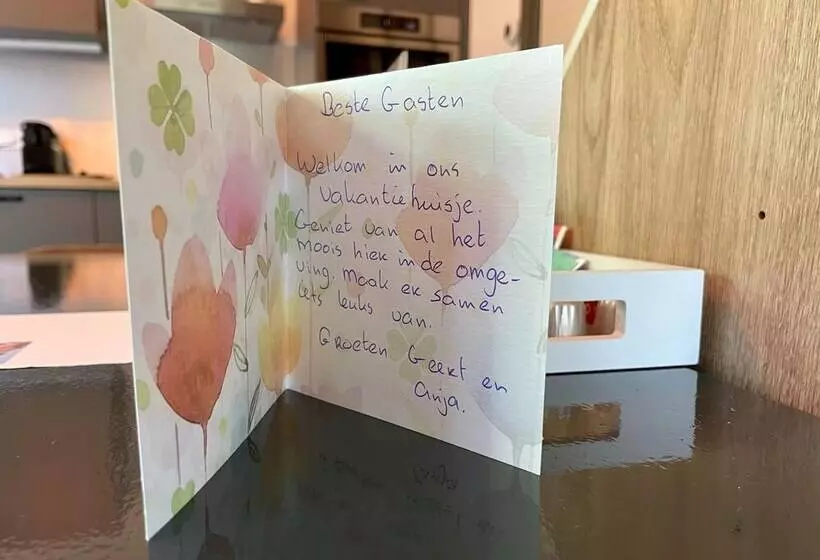 Beste Gasten
Welkom in ons
vakantiehuisje.
Geniet van al het
moois hier in de omge-
ving, maak er samen
iets leuks van.
Groeten Geert en
Anja.